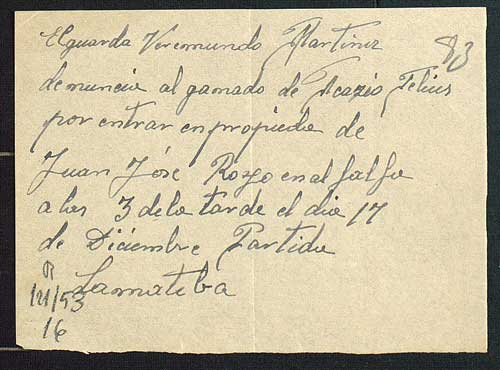 El guarda Viremundo Martinez
denuncia al ganado de Acazio Felius
por entrar en propieda de
Juan José Royo en alfalfa
a las 3 de la tarde el dia 17
de Diciembre Partida
Lamateba
83
121/53
16